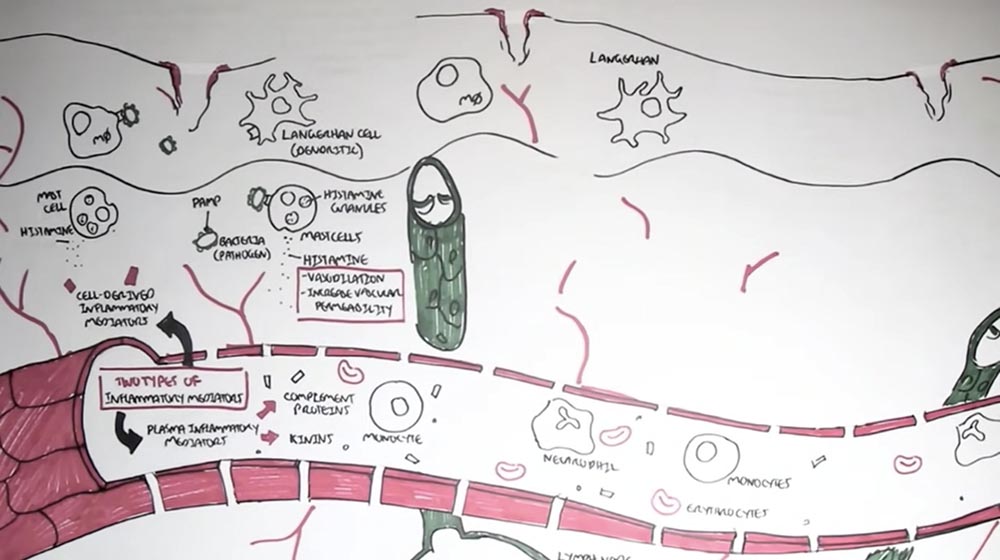 LANGERHAN
MØ
MØ
LANGERHAN CELL
(DENDRITIC)
MAST
CELL
HISTAMINE
PAMP
BACTERIA
(PATHOGEN)
HISTAMINE
GRANULES
MAST CELLS
HISTAMINE
- VASODILATION
- INCREASE VASCULAR
PERMEABILITY
CELL-DERIVED
INFLAMMATORY
MEDIATORS
TWO TYPES OF
INFLAMMATORY MEDIATORS
COMPLEMENT
PROTEINS
PLASMA INFLAMMATORY
MEDIATORS
KININS
MONOCYTE
NEUTROPHIL
MONOCYTES
ERYTHROCYTES